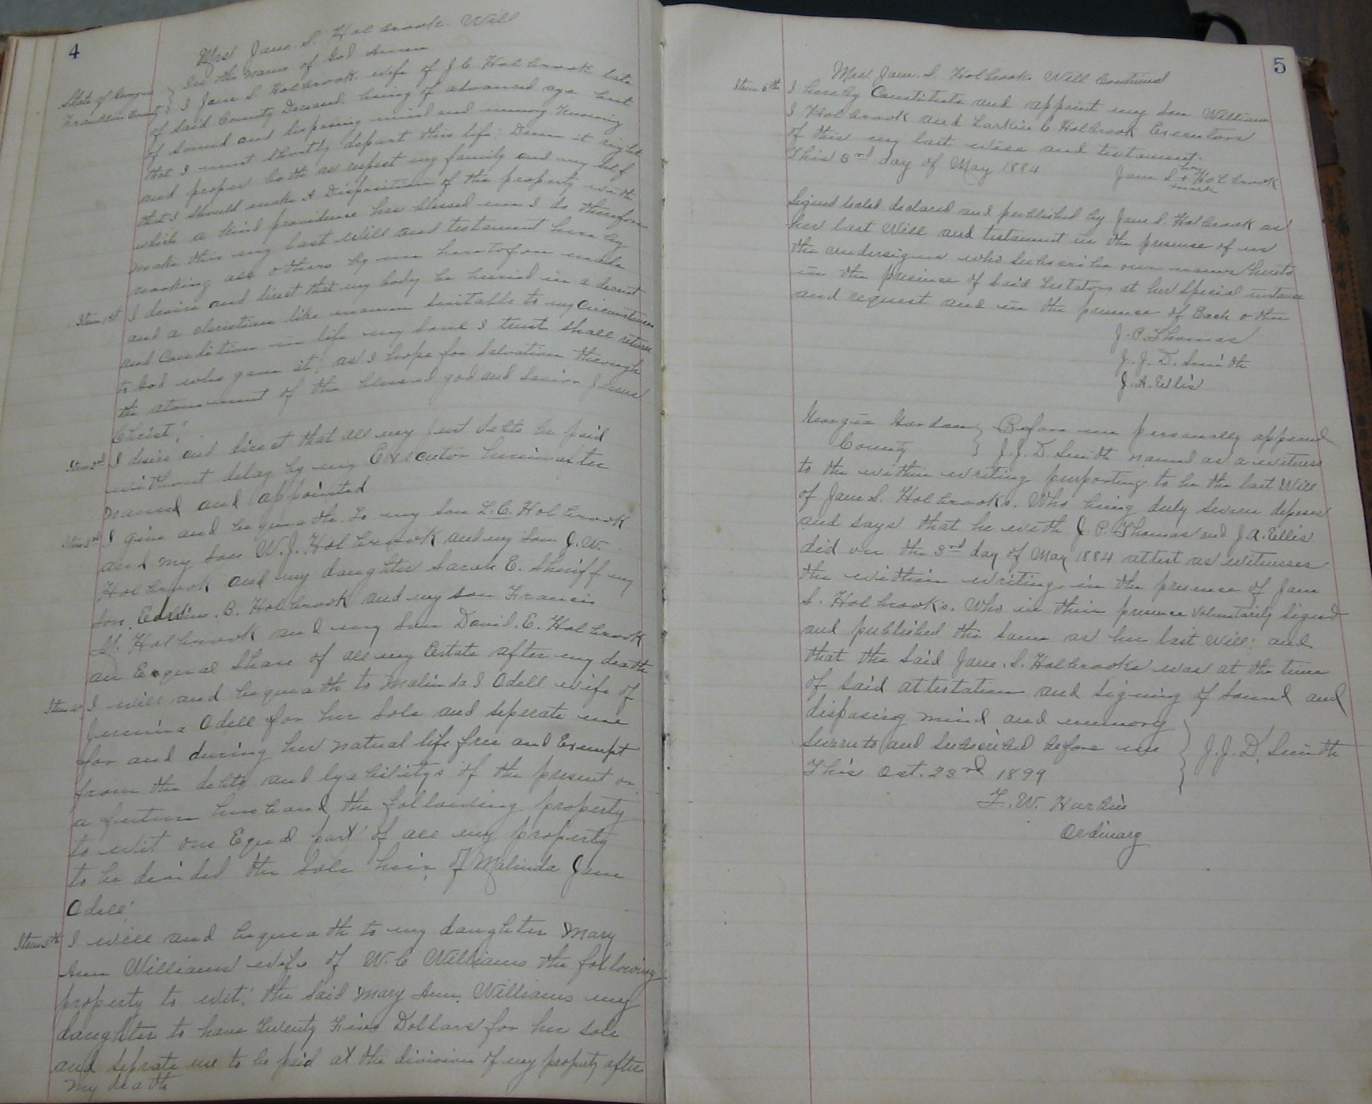 4
Mrs Jane. S. Holbrook Will
In the name of God Amen
State of Georgia
Franklin County
I Jane S Holbrook wife of J. C. Holbrook late
of said County Deceased being of advanced age but
of sound and disposing mind and memory knowing
that I must shortly depart this life: Deem it right
and proper both as respect my family and my self
that I should make a Disposition of the property with
which a kind providence has blessed me I do therefore
make this my last will and testament here by
revoking all others by me heretofore made
Item 1st I desire and direct that my body be buried in a decent
and a christian like manner suitable to my circumstances
and Condition in life my soul I trust shall return
to God who gave it; as I hope for salvation through
the atonement of the blessed god and Savior Jesus
Christ!
Item 2nd I desire and direct that all my just debts be paid
without delay by my Executor hereinafter
named and appointed
Item 3rd I give and bequeath to my son L. C. Holbrook
and my son W. J. Holbrook and my son J. W.
Holbrook and my daughter Sarah E. Sheriff my
son, B. Holbrook and my son Francis
M. Holbrook and my son David. E. Holbrook
an Eequal share of all my Estate after my death
Item 4 I will and bequeath to Malinda J Odell wife of
Odell for her sole and seperate use
for and during her natural life free and Exempt
from the debts and of the present or
a future husband the following property
to wit one Equal part of all my property
to be divided the sole heir of Malinda Jane
Odell
Item 5th I will and bequeath to my daughter Mary
Ann Williams wife of W. C Williams the following
property to wit; the said Mary Ann. Williams my
daughter to have Twenty Five Dollars for her sole
and seprate use to be paid at the division of my property after
my death
5
Mrs Jane. S. Holbrooks Will Continued
Item 6th I hereby Constitute and appoint my son William
J Holbrook and Larkin C Holbrook Executors
of this my last will and testament.
This 3rd day of May 1884
Jane S + Holbrook
her
mark
Signed sealed declared and published by Jane S Holbrook as
her last Will and testament in the presence of us
the undersigned who subscribe our names hereto
in the presence of said testator at her special instance
and request and in the presence of Each other
J. P. Thomas
J. J. D. Smith
J. A. Ellis
Georgia
County
Before me personally appeared
J. J. D. Smith named as a witness
to the within writing purporting to be the last Will
of Jane S. Holbrooks. Who being duly sworn deposes
and says that he with J. P. Thomas and J. A. Ellis
did on the 3rd day of May 1884 attest as witnesses
the within writing in the presence of Jane
S. Holbrooks. Who in their presence voluntarily signed
and published the same as her last Will; and
that the said Jane. S. Holbrooks was at the time
of said attestation and signing of sound and
disposing mind and memory
Sworn to and subscribed before me
This Oct. 23rd 1899
J. J. D. Smith
Ordinary